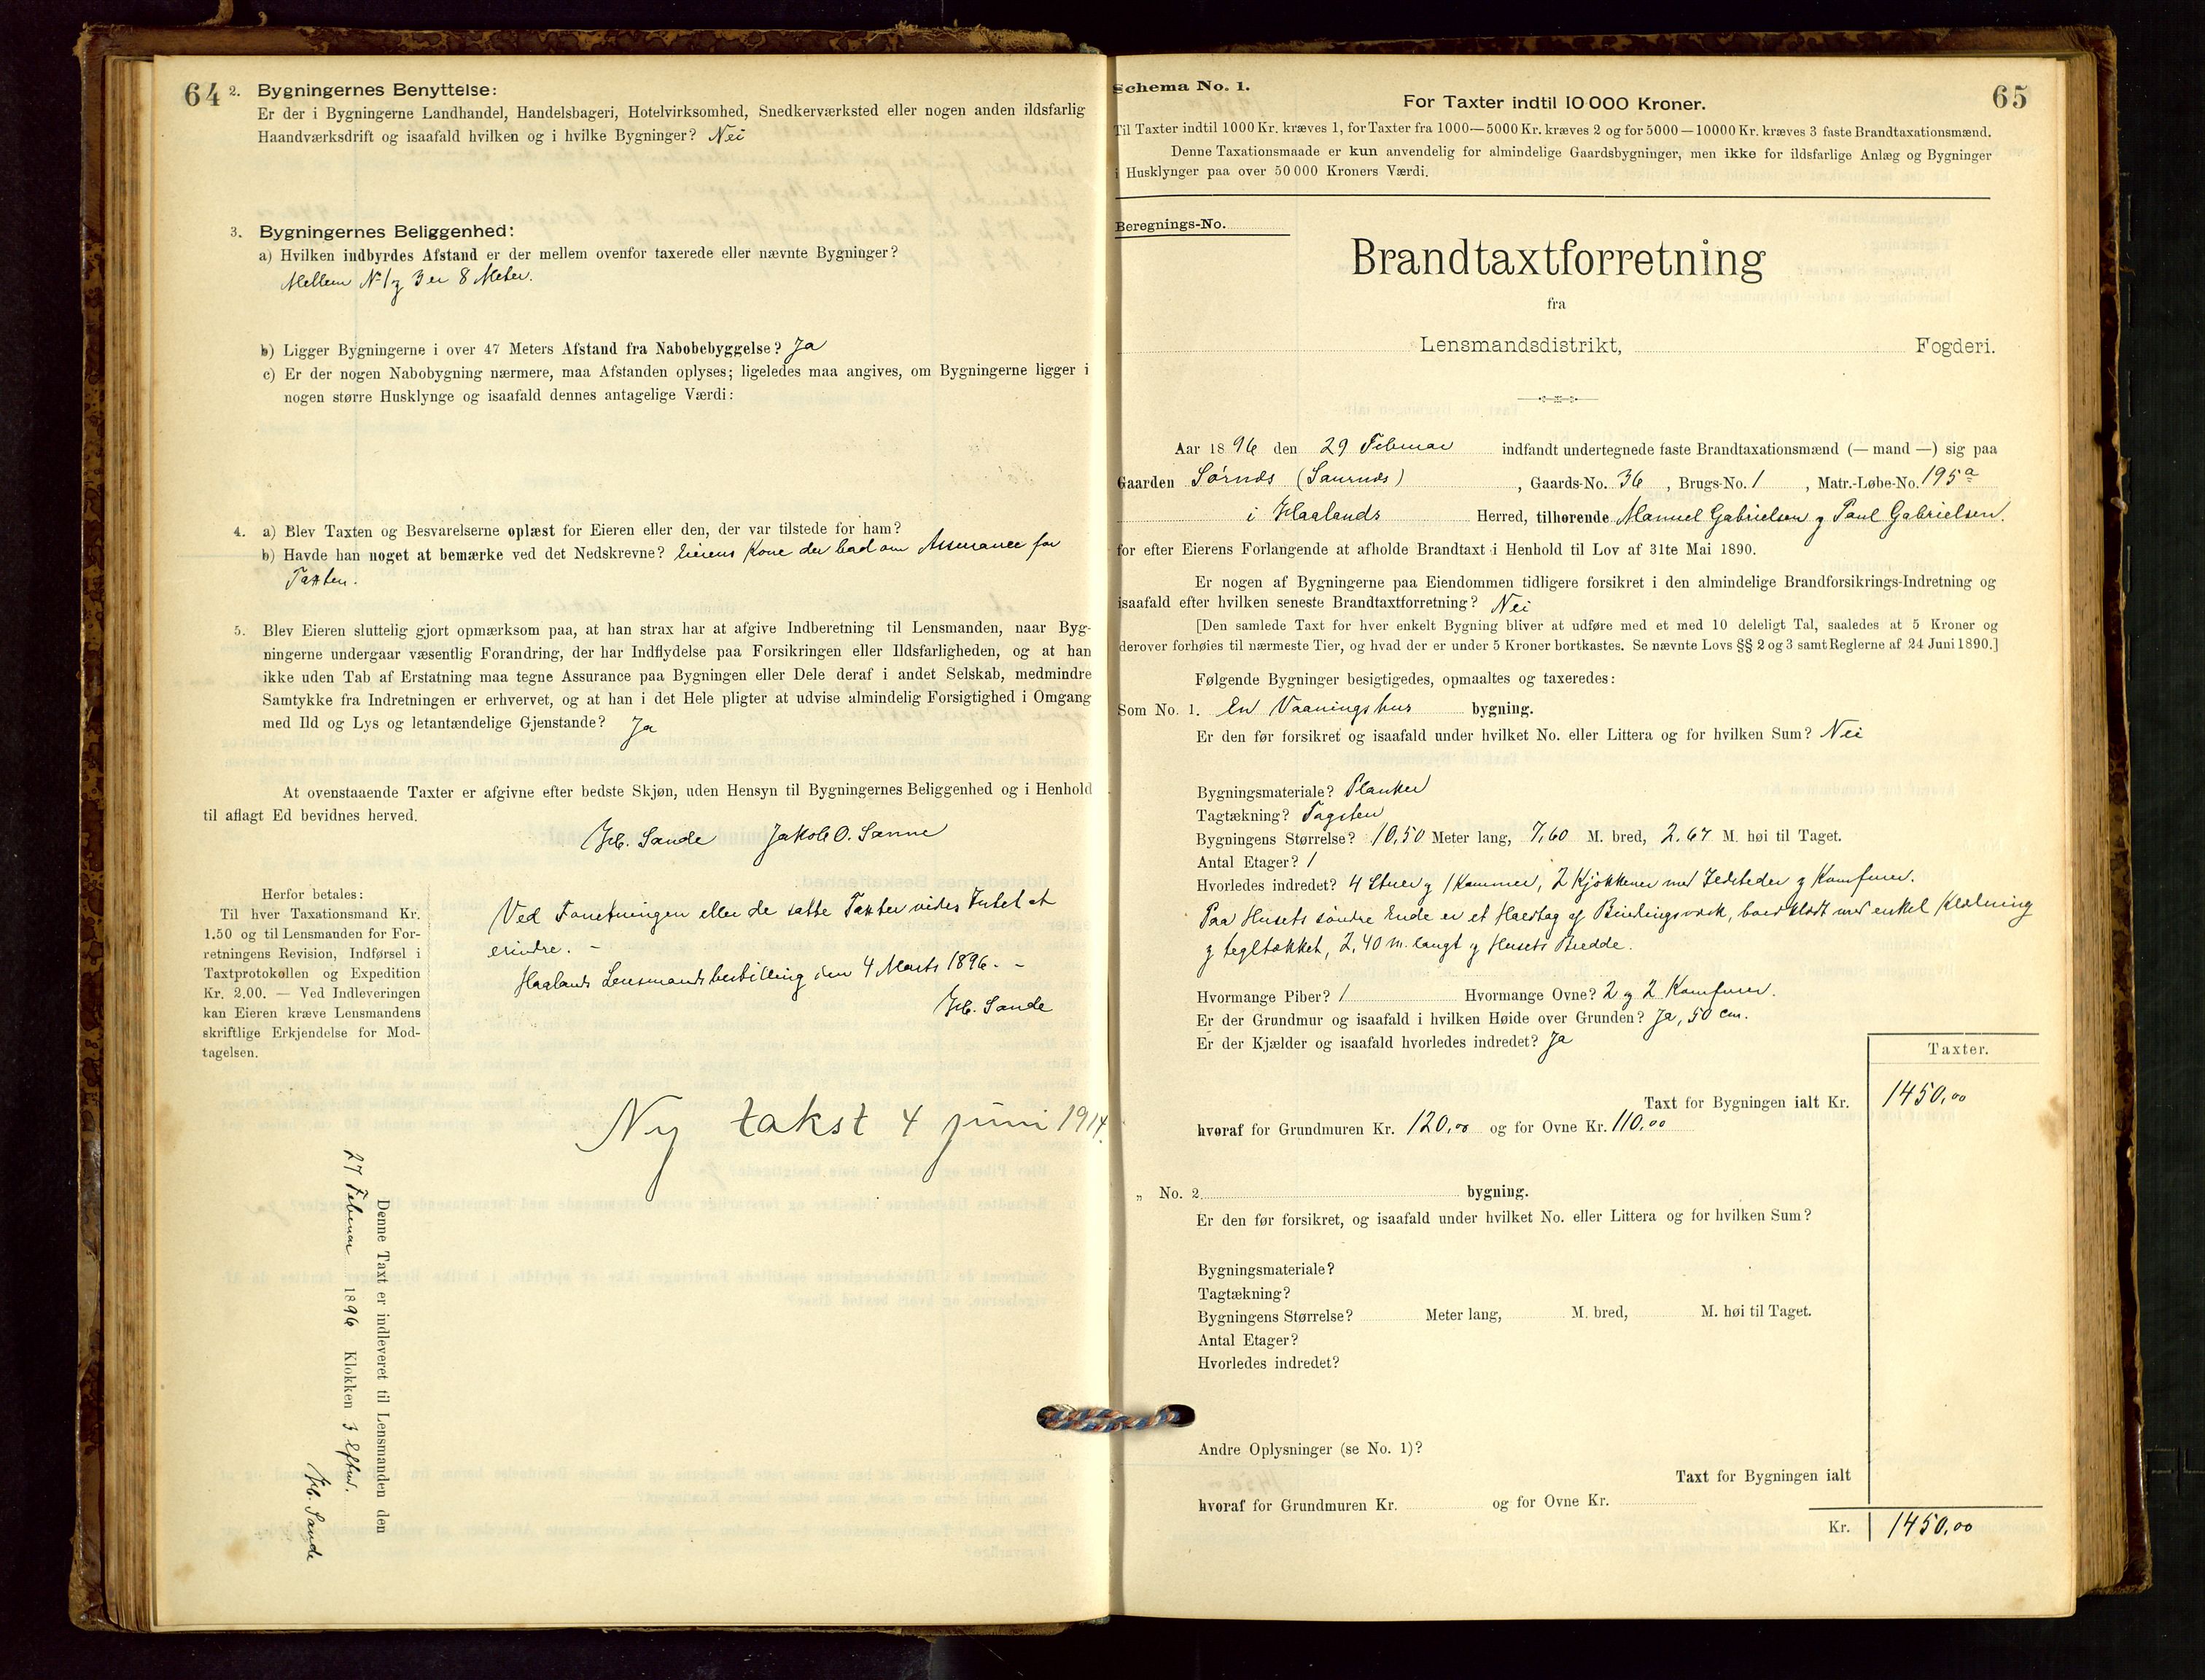 64
2. Bygningernes Benyttelse:
Er der i Bygningerne Landhandel, Handelsbageri, Hotelvirksomhed, Snedkerværksted eller nogen anden ildsfarlig
Haandværksdrift og isaafald hvilken og i hvilke Bygninger? Nei
3. Bygningernes Beliggenhed:
a) Hvilken indbyrdes Afstand er der mellem ovenfor taxerede eller nævnte Bygninger?
Mellem No 1 og 3 er 8 Meter.
b) Ligger Bygningerne i over 47 Meters Afstand fra Nabobebyggelse? Ja
c) Er der nogen Nabobygning nærmere, maa Afstanden oplyses; ligeledes maa angives, om Bygningerne ligger i
nogen større Husklynge og isaafald dennes antagelige Værdi:
4. a) Blev Taxten og Besvarelserne oplæst for Eieren eller den, der var tilstede for ham?
b) Havde han noget at bemærke ved det Nedskrevne? Eierens Kone der bad om Assurance for
Taxten.
5. Blev Eieren sluttelig gjort opmærksom paa, at han strax har at afgive Indberetning til Lensmanden, naar Byg-
ningerne undergaar væsentlig Forandring, der har Indflydelse paa Forsikringen eller Ildsfarligheden, og at han
ikke uden Tab af Erstatning maa tegne Assurance paa Bygningen eller Dele deraf i andet Selskab, medmindre
Samtykke fra Indretningen er erhvervet, og at han i det Hele pligter at udvise almindelig Forsigtighed i Omgang
med Ild og Lys og letantændelige Gjenstande? Ja
At ovenstaaende Taxter er afgivne efter bedste Skjøn, uden Hensyn til Bygningernes Beliggenhed og i Henhold
til aflagt Ed bevidnes herved.
Sande Jakob O. Sønne
Herfor betales:
Til hver Taxationsmand Kr.
1.50 og til Lensmanden for For-
retningens Revision, Indførsel i
Taxtprotokollen og Expedition
Kr. 2.00. — Ved Indleveringen
kan Eieren kræve Lensmandens
skriftlige Erkjendelse for Mod-
tagelsen.
Ved Forretningen eller de satte Taxter vides Intet at
erindre. -
Haalands Lensmandsbestilling den 4 Marts 1896. -
Sande
Ny takst 4 juni 1914.
Denne Taxt er indleveret til Lensmanden den
27 Februar 1896 Klokken 3 Efterm.
Sande
65
Schema No. 1.
For Taxter indtil 10 000 Kroner.
Til Taxter indtil 1000 Kr. kræves 1, for Taxter fra 1000—5000 Kr. kræves 2 og for 5000—10000 Kr. kræves 3 faste Brandtaxationsmænd.
Denne Taxationsmaade er kun anvendelig for almindelige Gaardsbygninger, men ikke for ildsfarlige Anlæg og Bygninger
i Husklynger paa over 50 000 Kroners Værdi.
Beregnings-No.
Brandtaxtforretning
fra
Lensmandsdistrikt, Fogderi.
Aar 1896 den 29 Februar indfandt undertegnede faste Brandtaxationsmænd (— mand —) sig paa
Gaarden Sørnds (Saurnds), Gaards-No. 36, Brugs-No. 1, Matr.-Løbe-No. 195a
i Haalands Herred, tilhørende Manuel Gabrielsen og Paul Gabrielsen.
for efter Eierens Forlangende at afholde Brandtaxt i Henhold til Lov af 31te Mai 1890.
Er nogen af Bygningerne paa Eiendommen tidligere forsikret i den almindelige Brandforsikrings-Indretning og
isaafald efter hvilken seneste Brandtaxtforretning? Nei
[Den samlede Taxt for hver enkelt Bygning bliver at udføre med et med 10 deleligt Tal, saaledes at 5 Kroner og
derover forhøies til nærmeste Tier, og hvad der er under 5 Kroner bortkastes. Se nævnte Lovs §§ 2 og 3 samt Reglerne af 24 Juni 1890.]
Følgende Bygninger besigtigedes, opmaaltes og taxeredes:
Som No. 1. En Vaaningshus bygning.
Er den før forsikret og isaafald under hvilket No. eller Littera og for hvilken Sum? Nei
Bygningsmateriale? Planker
Tagtækning? Tagsten
Bygningens Størrelse? 10,50 Meter lang, 7,60 M. bred, 2.67 M. høi til Taget.
Antal Etager? 1
Hvorledes indredet? 4 Stuer og 1 Kammer, 2 Kjøkkener med Ildsteder og Komfurer.
Paa Husets søndre Ende er et Halvtag af Bindingsværk, bordklædt med enkel Klædning
og tegltækket, 2,40 m. langt og Husets Bredde.
Hvormange Piber? 1 Hvormange Ovne? 2 og 2 Komfurer.
Er der Grundmur og isaafald i hvilken Høide over Grunden? Ja, 50 cm.
Er der Kjælder og isaafald hvorledes indredet? Ja
Taxter.
Taxt for Bygningen ialt Kr. 1450,00
hvoraf for Grundmuren Kr. 120,00 og for Ovne Kr. 110,00
„ No. 2 bygning.
Er den før forsikret, og isaafald under hvilket No. eller Littera og for hvilken Sum?
Bygningsmateriale?
Tagtækning?
Bygningens Størrelse? Meter lang, M. bred, M. høi til Taget.
Antal Etager?
Hvorledes indredet?
Andre Oplysninger (se No. 1)?
Taxt for Bygningen ialt
hvoraf for Grundmuren Kr. og for Ovne Kr.
Kr. 1450,00